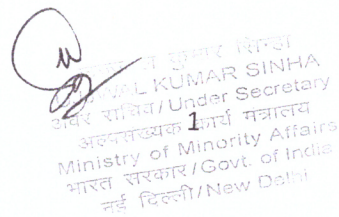 कुमार सिन्हा
KUMAR SINHA
अवर सचिव/Under Secretary
अल्पसंख्यक कार्य मंत्रालय
1
Ministry of Minority Affairs
भारत सरकार/Govt. of India
नई दिल्ली/New Delhi